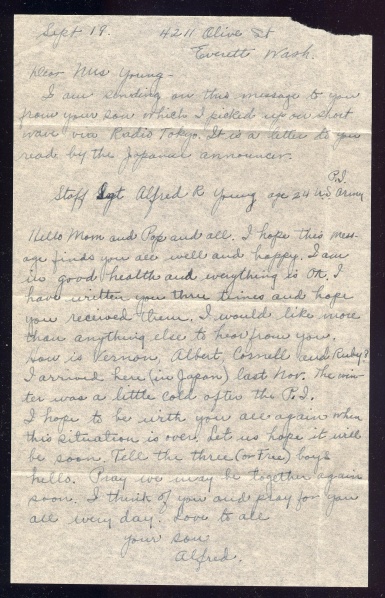 Sept 19. 4211 Olive St
Everett Wash.
Dear Mrs Young -
I am sending on this message to you
from your son which I picked up on short
wave via Radio Tokyo. It is a letter to you
read by the Japanese announcer.
P.I.
Staff Sgt Alfred R Young age 24 US Army
Hello Mom and Pop and all. I hope this mess-
age finds you all well and happy. I am
in good health and everything is OK. I
have written you three times and hope
you received them. I would like more
than anything else to hear from you.
How is Vernon, Albert, Cornell and Ruby?
I arrived here (in Japan) last Nov. The win-
ter was a little cold after the P.I.
I hope to be with you all again when
this situation is over. Let us hope it will
be soon. Tell the three (or tree) boys
hello. Pray we may be together again
soon. I think of you and pray for you
all every day. Love to all
your son
Alfred.